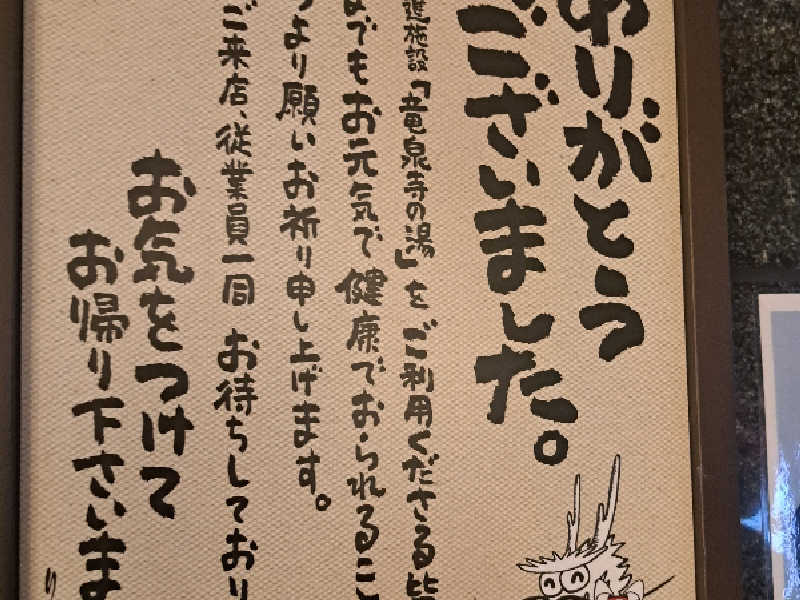 ありがとう
ございました。
進施設「竜泉寺の湯」をご利用くださる皆
までもお元気で健康でおられるこ
より願いお祈り申し上げます。
ご来店、従業員一同 お待ちしており
お気をつけて
お帰り下さいま